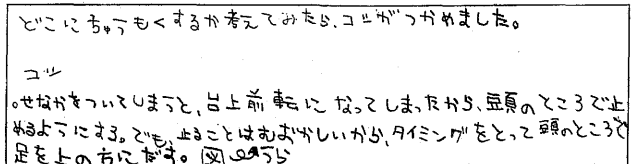 どこにちゅうもくするか考えてみたら、コツがつかめました。
コツ
。せなかをついてしまうと、台上前転になってしまったから、頭のところで止
めるようにする。でも、止ることはむずかしいから、タイミングをとって頭のところで
足を上の方にだす。図 うら